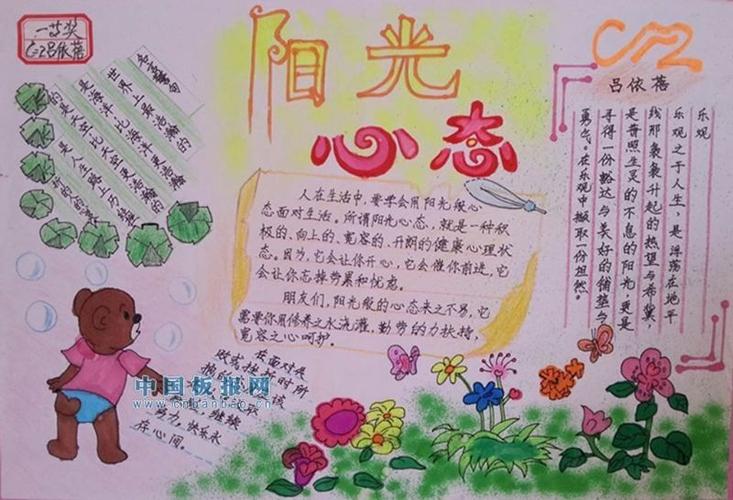 一等奖
吕依蓓
阳光
心态
名言警句
世界上最浩瀚的
是海洋比海洋更浩瀚
的是天空比天空更浩瀚的
是人生路上
人在生活中,要学会用阳光般心
态面对生活。所谓阳光心态,就是一种积
极的、向上的、宽容的、开朗的健康心理状
态。因为,它会让你开心,它会催你前进,它
会让你忘掉劳累和忧虑。
朋友们,阳光般的心态来之不易,它
需要你用修养之水浇灌,勤劳的力扶持,
宽容之心呵护。
吕依蓓
乐观
乐观之于人生,是浮荡在地平
线那袅袅升起的热望与希冀,
是普照生灵的不息的阳光,更是
寻得一份豁达与美好的铺垫与
勇气。在乐观中撷取一份坦然。
在面对失
败或挫折时所
继续
努力,快乐永
存心间。
中国板报网
www.cnbanbao.cn